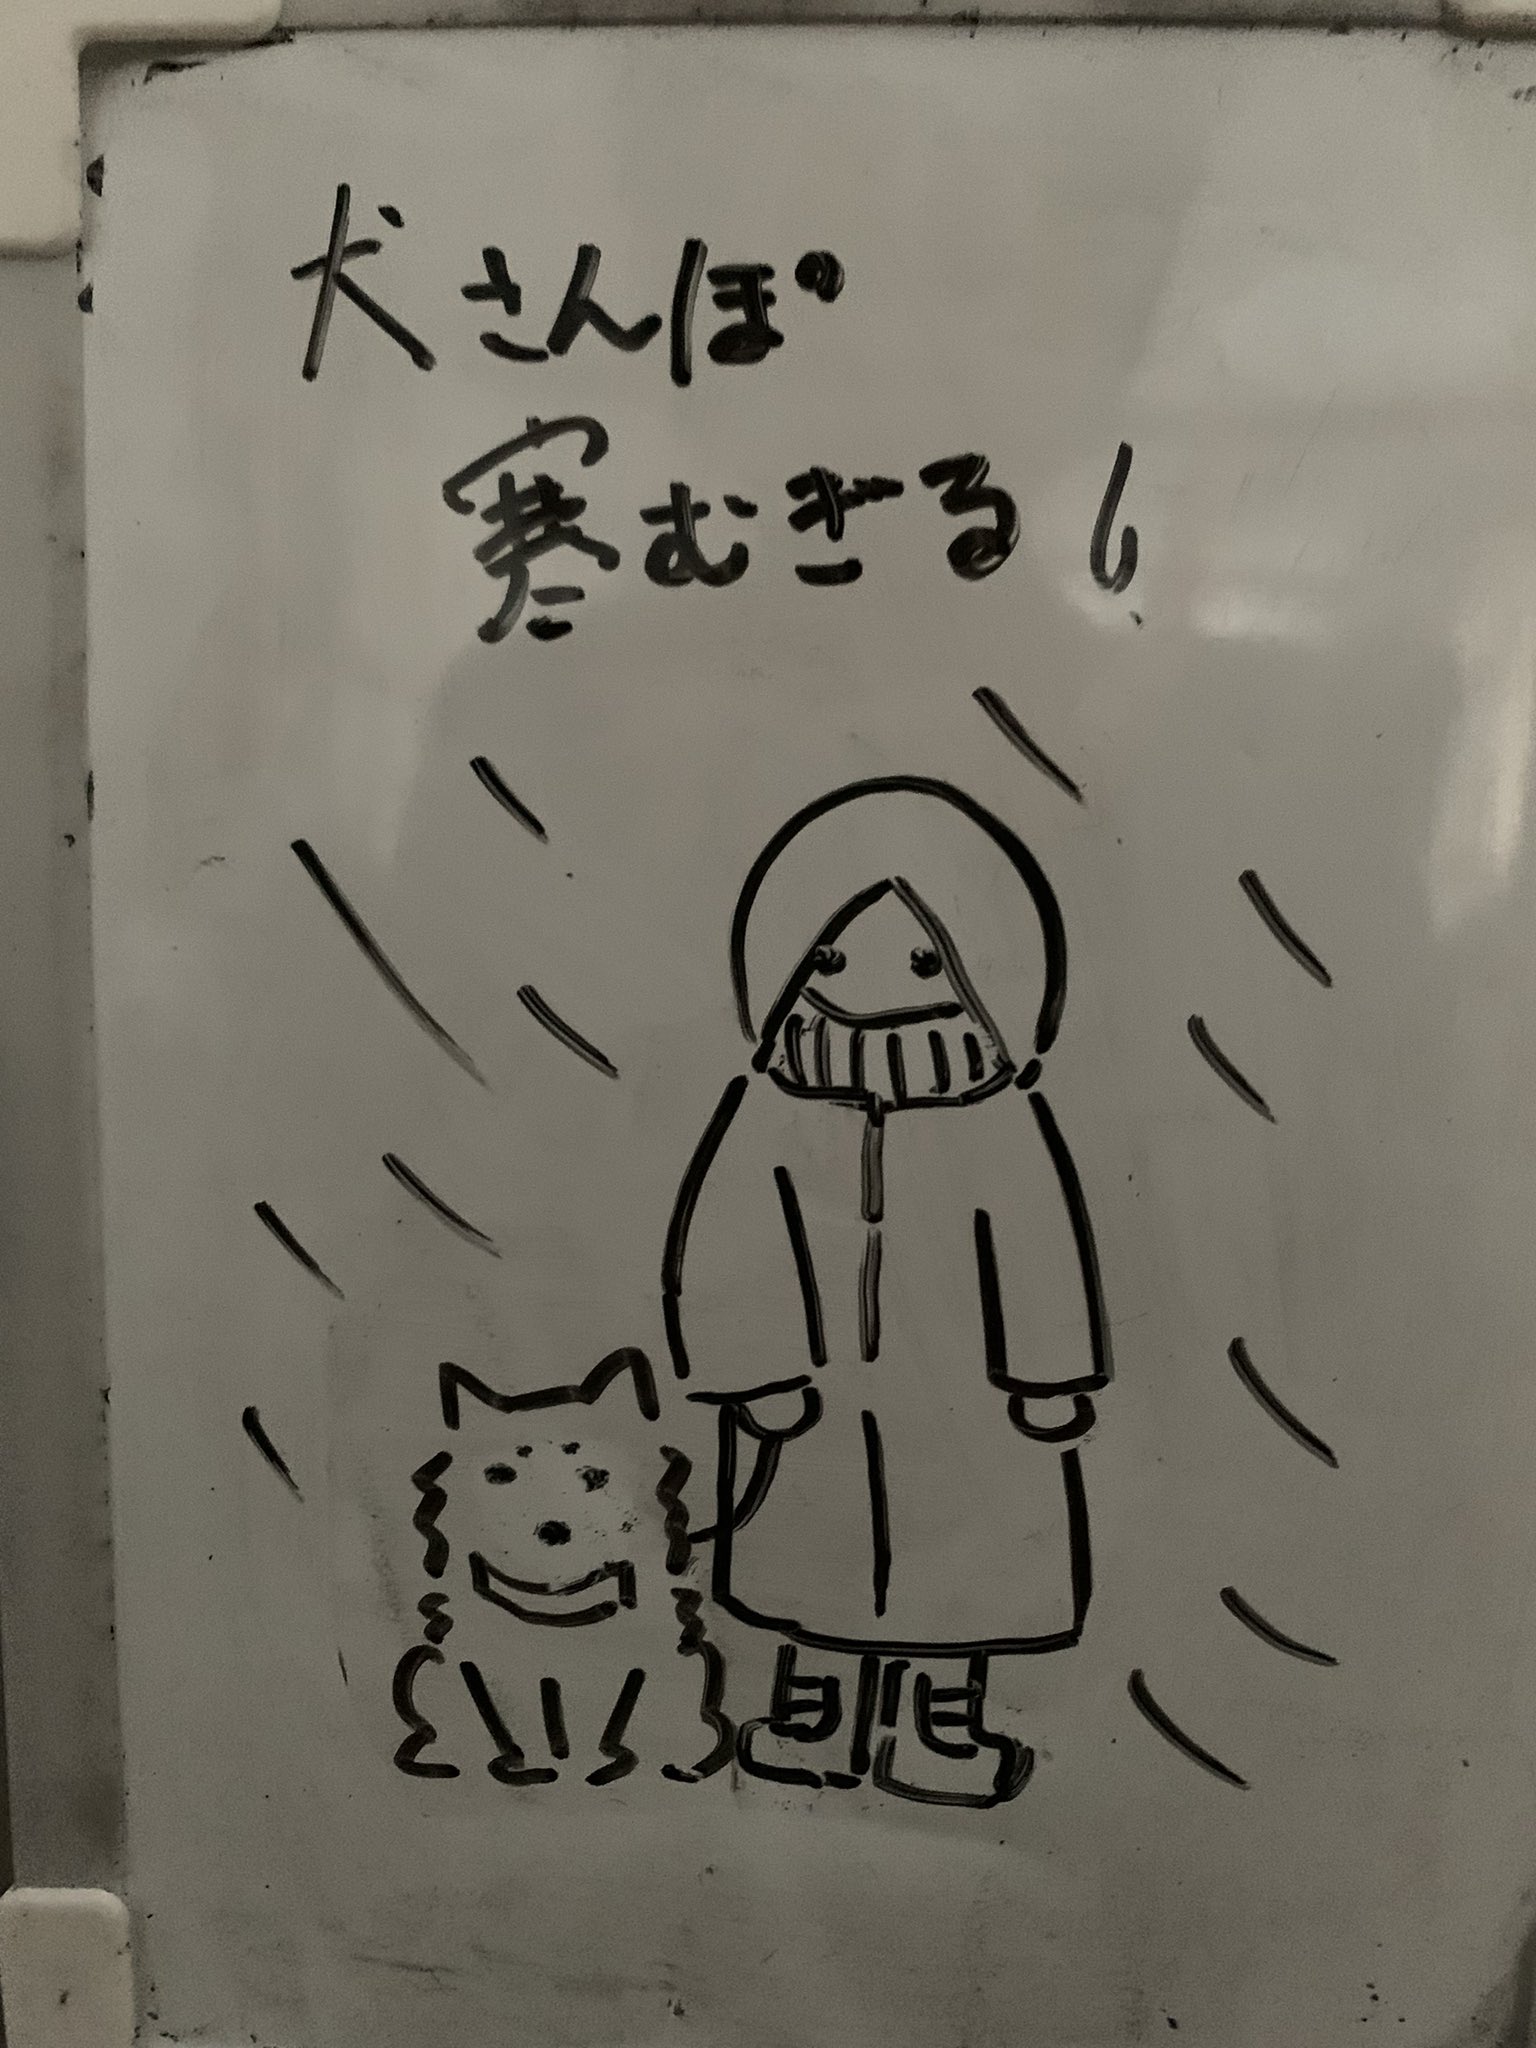 犬さんぽ
寒むぎる!